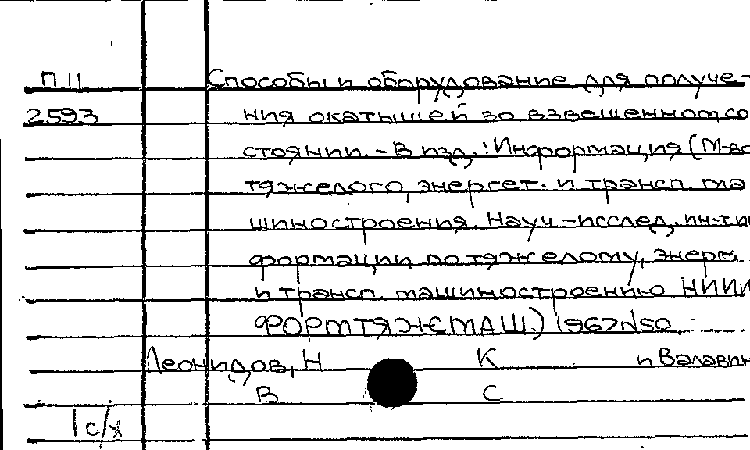 П 11 Способы и оборудование для получе-
2593 ния окатышей во взвешенном со
стоянии. - В изд.: Информация (М-во
тяжелого, энергет. и трансп. ма
шиностроения. Науч.-исслед. ин-т ин
формации по тяжелому, энерг.
и трансп. машиностроению НИИИ
ФОРМТЯЖМАШ.) 1967 №50.
Леонидов, Н К и Валавин
В С
1 с/х